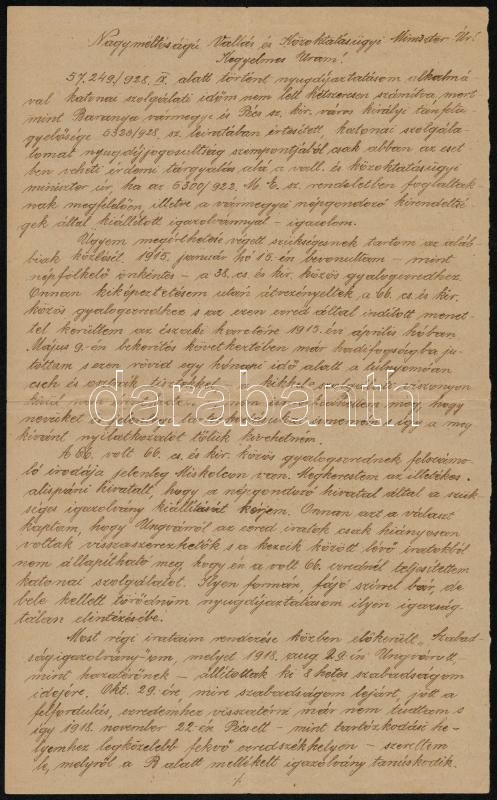 Nagyméltóságú Vallás és Közoktatásügyi Miniszter Úr!
Kegyelmes Uram!
57.249/928. IX. alatt történt nyugdíjaztatásom alkalmá-
val katonai szolgálati időm nem lett kétszeresen számítva, mert
mint Baranya vármegye és Pécs sz. kir. város királyi tanfel-
ügyelősége 5320/928. sz. leiratában értesített, katonai szolgála-
tomat nyugdíjjogosultság szempontjából csak abban az eset-
ben veheti érdemi tárgyalás alá a vall. és közoktatásügyi
miniszter úr, ha az 6300/922. M. E. sz. rendeletben foglaltak-
nak megfelelőn, illetve a vármegyei népgondozó kirendeltsé-
gek által kiállított igazolvánnyal - igazolom.
Ügyem megérthetése végett szükségesnek tartom az aláb-
biak közlését. 1915. január hó 15.-én bevonultam - mint
népfölkelő önkéntes - a 38. cs. és kir. közös gyalogezredhez.
Onnan kiképeztetésem után átvezényeltek a 66. cs. és kir.
közös gyalogezredhez s az ezen ezred által indított menet-
tel kerültem az északi harctérre 1915. év április havában
Május 9.-én bekerítés következtében már hadifogságba ju-
tottam s ezen rövid egy hónapi idő alatt a túlnyomóan
cseh és osztrák tisztekkel kikkel viszonyom
kívül nem hogy
nevüket s így a meg
kívánt nyilatkozatot tőlük kérhetném.
A 66. volt cs. és kir. közös gyalogezrednek felszámo-
ló irodája jelenleg Miskolcon van. Megkerestem az illetékes
alispáni hivatalt, hogy a népgondozó hivatal által a szük-
séges igazolvány kiállítását kérjem. Onnan azt a választ
kaptam, hogy Ungvárról az ezred iratok csak hiányosan
voltak visszaszerezhetők s a kezeik között lévő iratokból
nem állapítható meg, hogy én a volt 66. ezrednél teljesítettem
katonai szolgálatot. Ilyen formán, fájó szívvel bár, de
bele kellett törődnöm nyugdíjaztatásom ilyen igazság-
talan elintézésébe.
Most régi irataim rendezése közben előkerült „Szabad-
ságigazolvány"-om, melyet 1918. aug. 29-én Ungvárott,
mint hazatérőnek - állítottak ki 8 hetes szabadságom
idejére. Okt. 29.-ére, mire szabadságom lejárt, jött a
felfordulás, ezredemhez visszatérni már nem tudtam s
így 1918. november 22-én Pécsett - mint tartózkodási he-
lyemhez legközelebb fekvő ezredszékhelyen - szereltem
le, melyről a P. alatt mellékelt igazolvány tanúskodik.
./.
darabanth